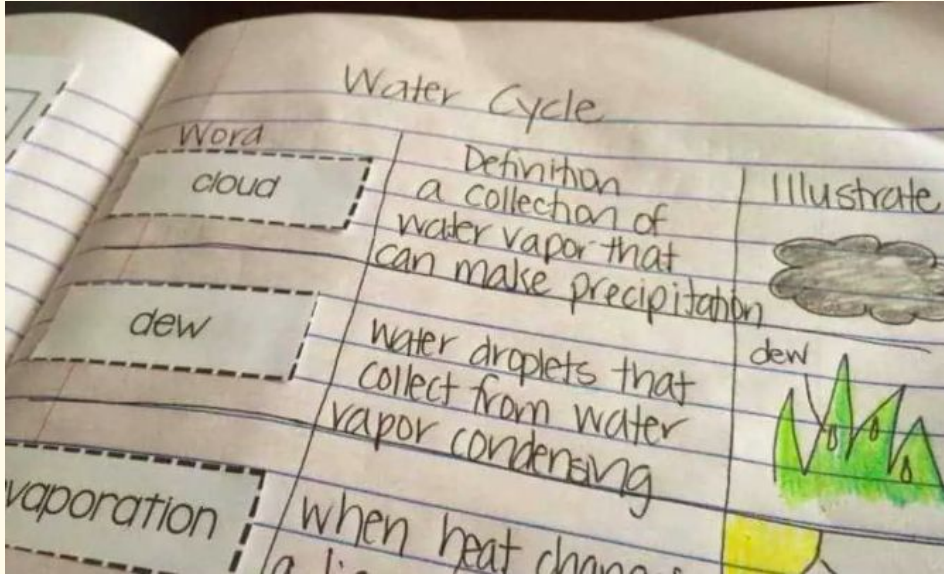 Water Cycle
Word
Definition
Illustrate
cloud
a collection of
water vapor that
can make precipitation
dew
water droplets that
collect from water
vapor condensing
dew
vaporation
when heat
a